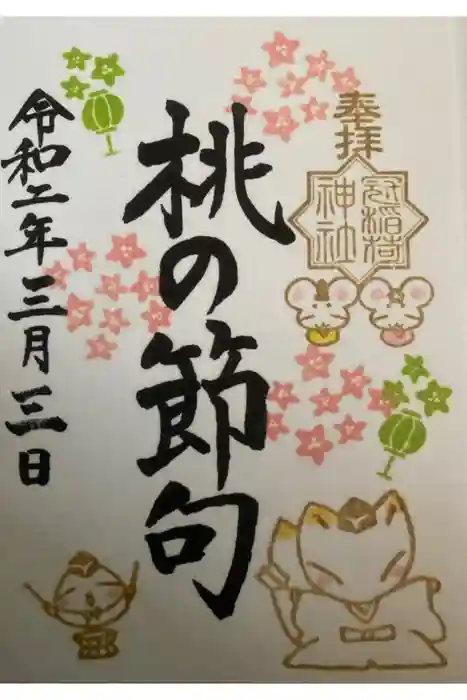 奉拝
冠稲荷
神社
桃の節句
令和二年三月三日